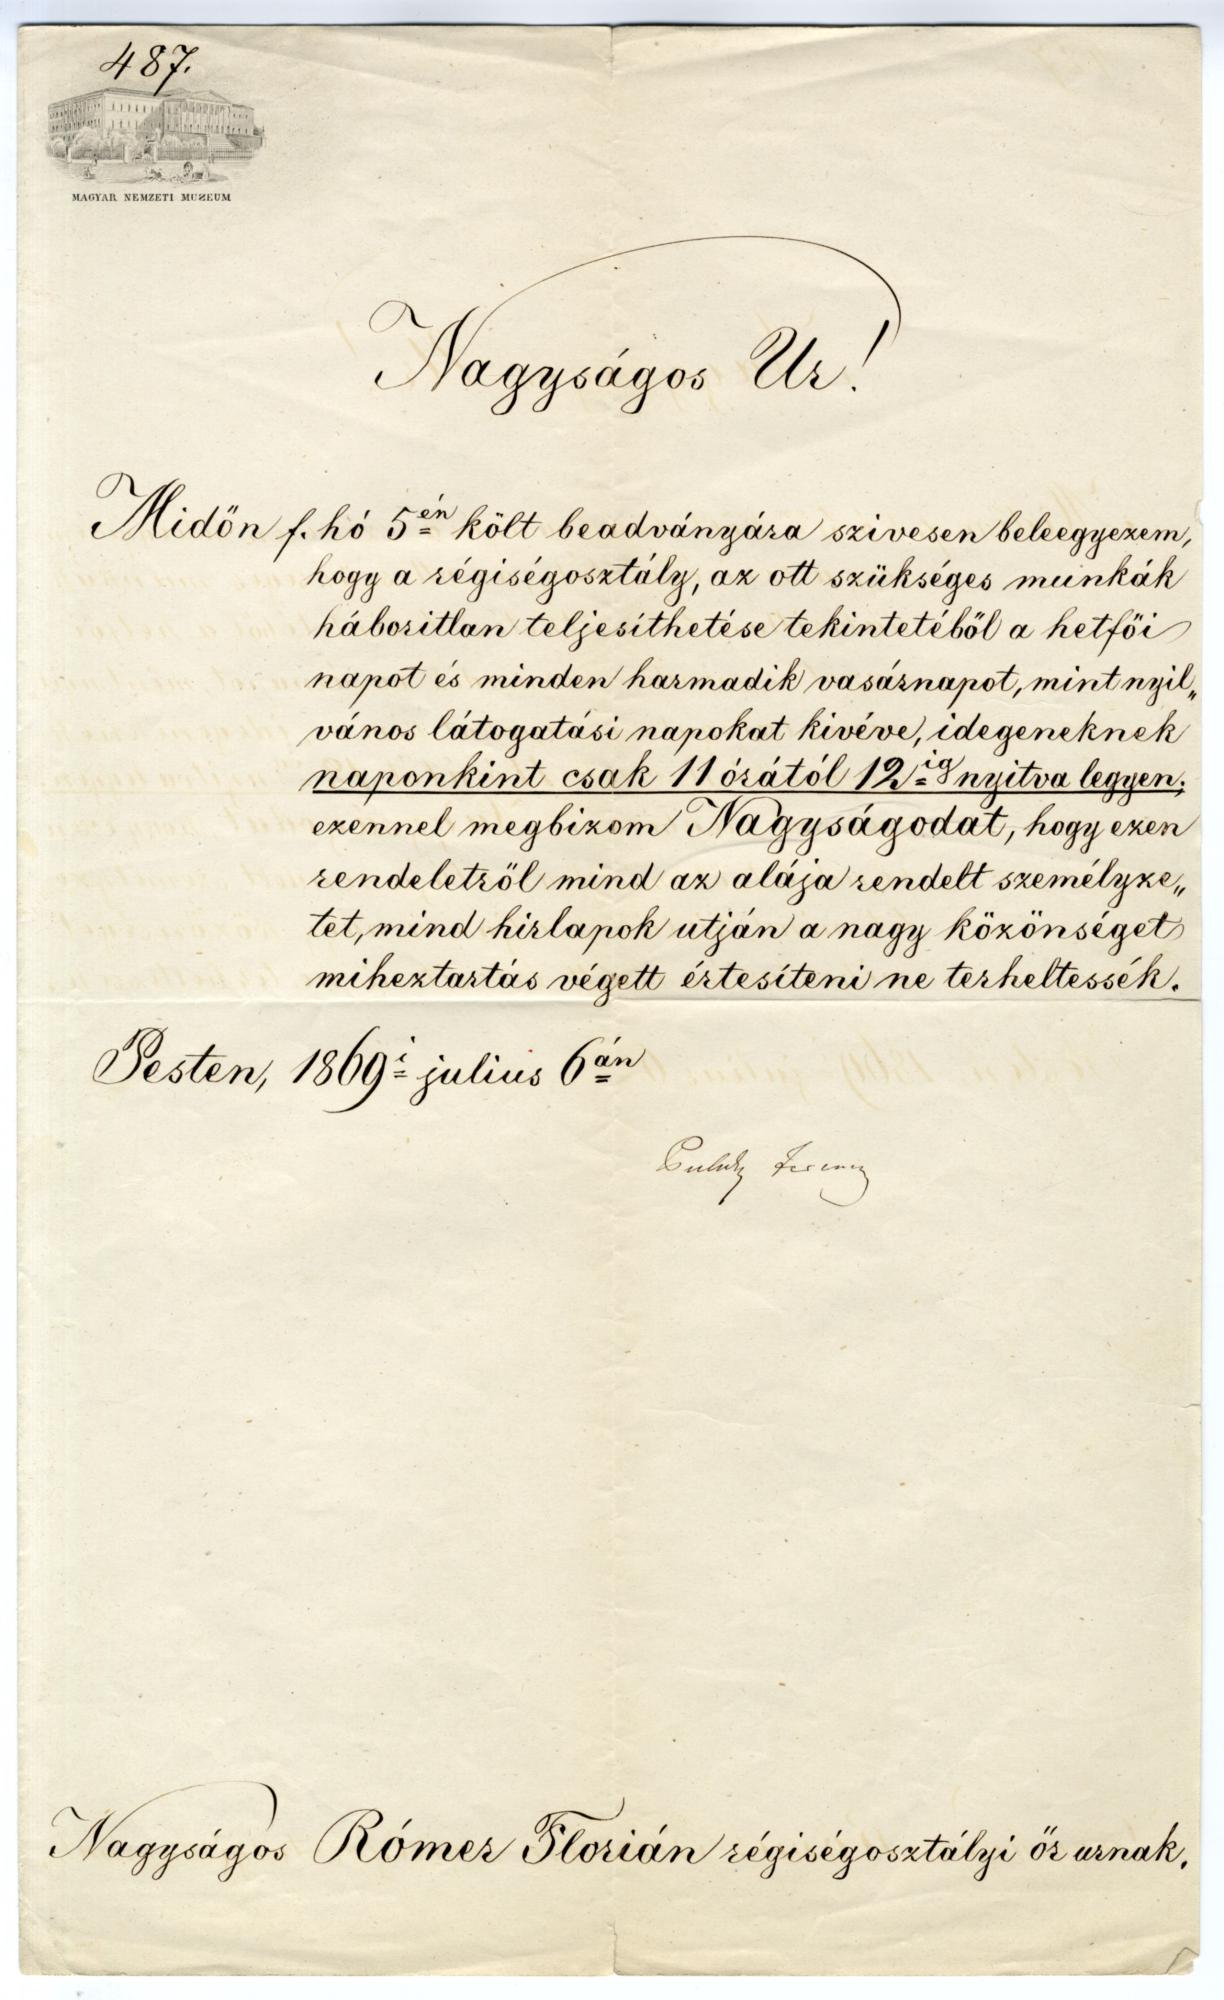 487.
MAGYAR NEMZETI MUZEUM
Nagyságos Ur!
Midőn f. hó 5én költ beadványára szivesen beleegyezem,
hogy a régiségosztály, az ott szükséges munkák
háboritlan teljesíthetése tekintetéből a hetfői
napot és minden harmadik vasárnapot, mint nyil„
vános látogatási napokat kivéve, idegeneknek
naponkint csak 11 órától 12ig nyitva legyen;
ezennel megbizom Nagyságodat, hogy ezen
rendeletről mind az alája rendelt személyze„
tet, mind hirlapok utján a nagy közönséget
miheztartás végett értesíteni ne terheltessék.
Pesten, 1869i julius 6án
Pulszky Ferencz
Nagyságos Rómer Flórián régiségosztályi őr urnak.